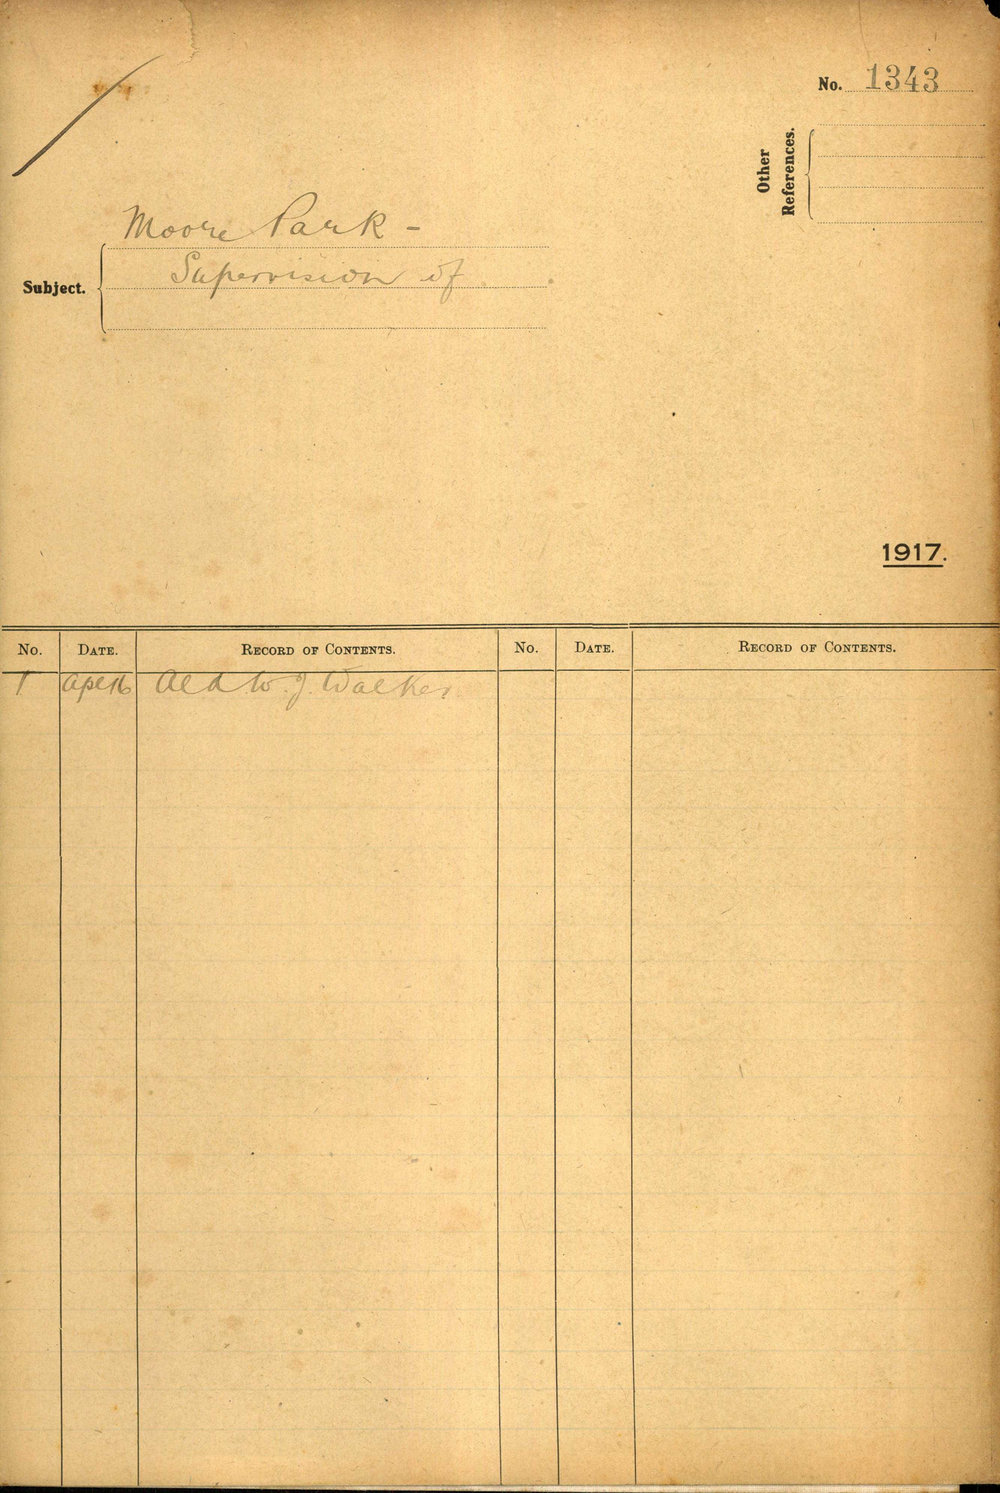 No. 1343
Other
References.
Moore Park -
Subject.
Supervision of
1917.
No. DATE. RECORD OF CONTENTS. No. DATE. RECORD OF CONTENTS.
1 Apl 16 Ald W. J. Walker